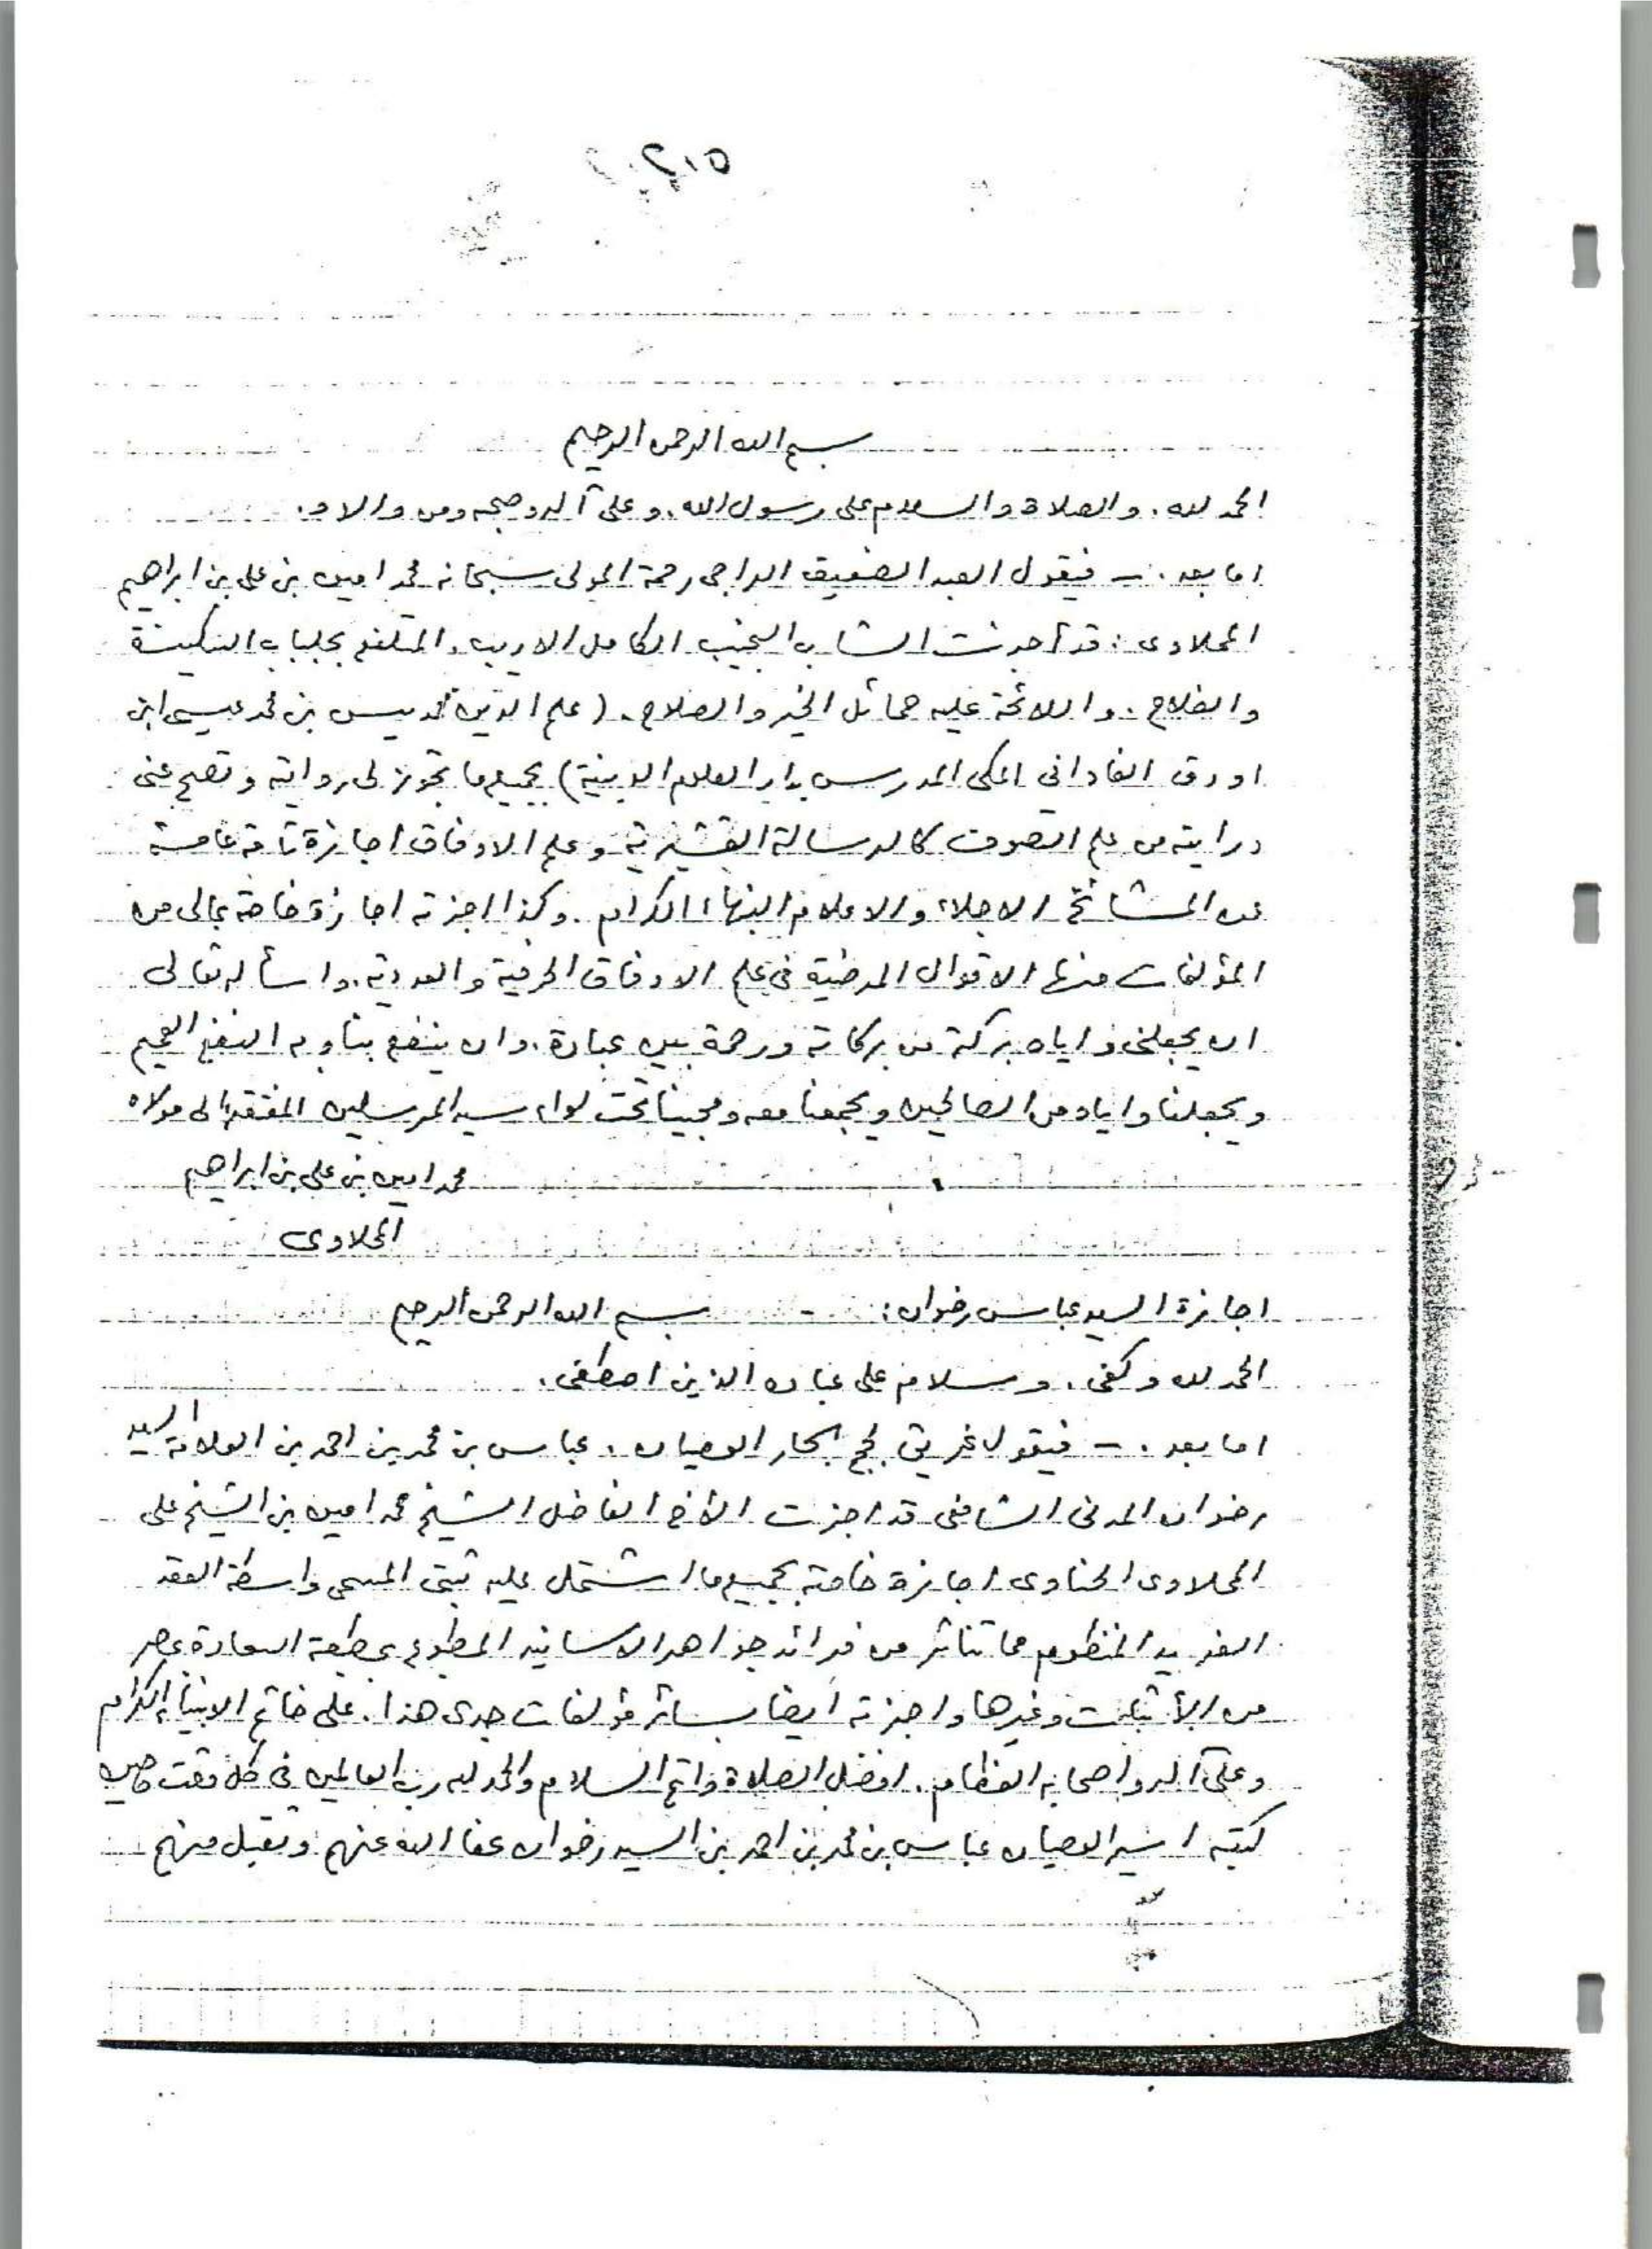 بسم الله الرحمن الرحيم
الحمد لله. والصلاة والسلام على رسول الله. وعلى آله وصحبه ومن والاه.
اما بعد. - فيقول العبد الضعيف الراجى رحمة المولى سبحانه محمد امين بن على بن ابراهيم
المحلاوى: قد أجزت الشاب النجيب الكامل الاديب. المتلفع بجلباب السكينة
والفلاح. واللائحة عليه حمائل الخير والصلاح. (علم الدين محمد يس بن محمد عيسى ابن
اودق الفادانى المكى المدرس بدار العلوم الدينية) بجميع ما تجوز لى روايته وتصح عنى
درايته من علم التصوف كالرسالة القشيرية وعلم الاوفاق اجازة تامة عامة
عن المشائخ الاجلاء والاعلام النبهاء الكرام. وكذا اجزته اجازة خاصة بمالى من
المؤلفات منها الاقوال المرضية فى علم الاوفاق الحرفية والعددية. واسأله تعالى
ان يجعلنى واياه بركة من بركاته ورحمة بين عباده. وان ينفع بنا وبه النفع العميم
ويجعلنا واياه من الصالحين ويجمعنا معه ومحبينا تحت لواء سيد المرسلين المفتقر الى مولاه
محمد امين بن على بن ابراهيم
المحلاوى
اجازة السيد عباس رضوان: - بسم الله الرحمن الرحيم
الحمد لله وكفى. وسلام على عباده الذين اصطفى.
اما بعد. - فيقول غريق لجج بحار العصيان. عباس بن محمد بن احمد بن العلامة السيد
رضوان المدنى الشافعى قد اجزت الأخ الفاضل الشيخ محمد امين بن الشيخ على
المحلاوى الحناوى اجازة خاصة بجميع ما اشتمل عليه ثبتى المسمى واسطة العقد
الفريد المنظوم مما تناثر من فرائد جواهر الاسانيد المطبوع بمطبعة السعادة بمصر
من الأثبات وغيرها واجزته أيضا بسائر مؤلفات جدى هذا. على خاتم الانبياء الكرام
وعلى آله واصحابه العظام. افضل الصلاة واتم السلام والحمد لله رب العالمين فى كل وقت وحين
كتبه اسير العصيان عباس بن محمد بن احمد بن السيد رضوان عفا الله عنهم وتقبل منهم